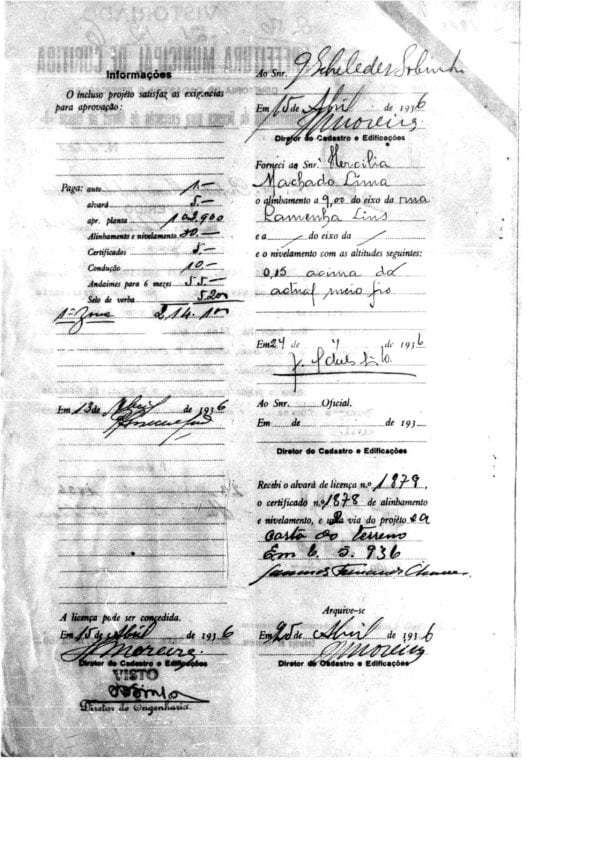 Informações
O incluso projéto satisfaz as exigencias
para aprovação:
Paga: auto 1.—
alvará 5.—
apr. planta 102.900
Alinhamento e nivelamento 30—
Certificados 5.—
Condução 10.—
Andaimes para 6 mezes 55.—
Selo de verba 5.200
1ª Zona 214.100
Em 13 de Abril de 1936
A licença póde ser concedida.
Em 15 de Abril de 1936
Moreira
Diretor do Cadastro e Edificações
VISTO
Diretor de Engenharia
Ao Snr. J Scheleder Sobrinho
Em 15 de Abril de 1936
Moreira
Diretor do Cadastro e Edificações
Forneci ao Snr. Hercilia
Machado Lima
o alinhamento a 9,00 do eixo da rua
Lamenha Lins
e a do eixo da
e o nivelamento com as altitudes seguintes:
0,15 acima do
actual meio fio
Em 24 de 4 de 1936
Ao Snr. Oficial.
Em de de 193
Diretor do Cadastro e Edificações
Recebi o alvará de licença n.o 1879,
o certificado n.o 1878 de alinhamento
e nivelamento, e uma via do projéto e a
carta do terreno
Em 6. 5. 936
Fernandes Chaves
Arquive-se
Em 25 de Abril de 1936
Moreira
Diretor do Cadastro e Edificações